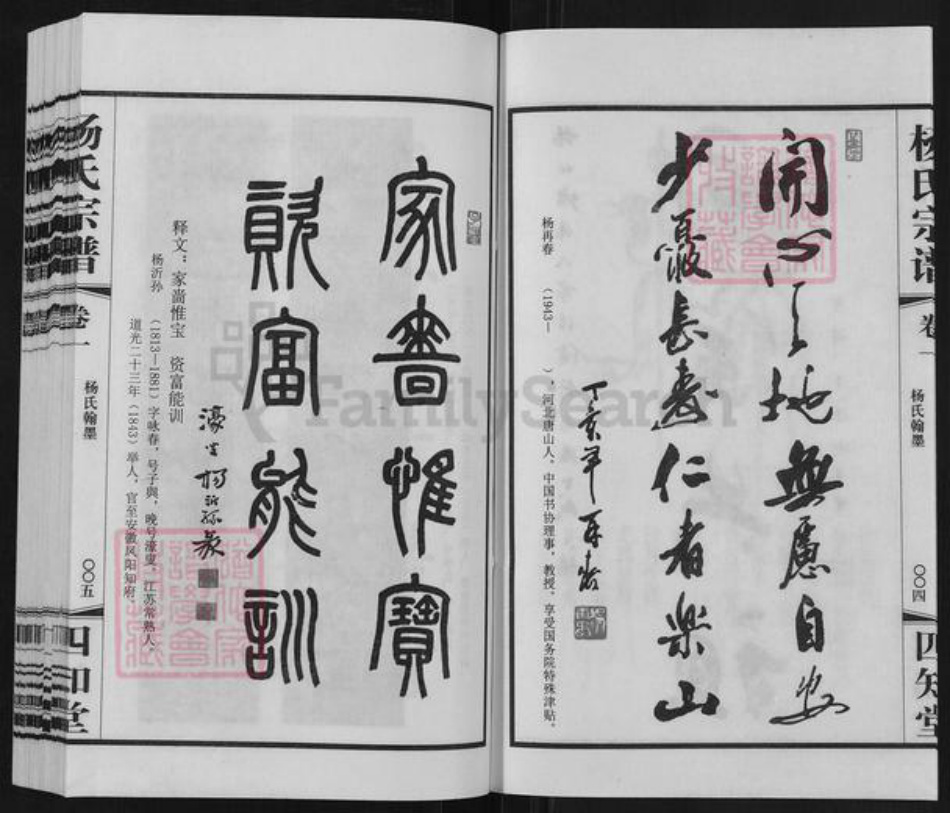 杨氏宗谱
卷一
杨氏翰墨
〇〇四
四知堂
開心天地無慮自安
少憂長壽仁者樂山
丁亥年 再春
杨再春 (1943— )，河北唐山人，中国书协理事，教授，享受国务院特殊津贴。
家嗇惟寶
資富能訓
濠叟楊沂孫篆
释文：家啬惟宝 资富能训
杨沂孙 (1813—1881) 字咏春，号子舆，晚号濠叟，江苏常熟人，
道光二十三年 (1843) 举人，官至安徽凤阳知府。
杨氏宗谱
卷一
杨氏翰墨
〇〇五
四知堂
FamilySearch